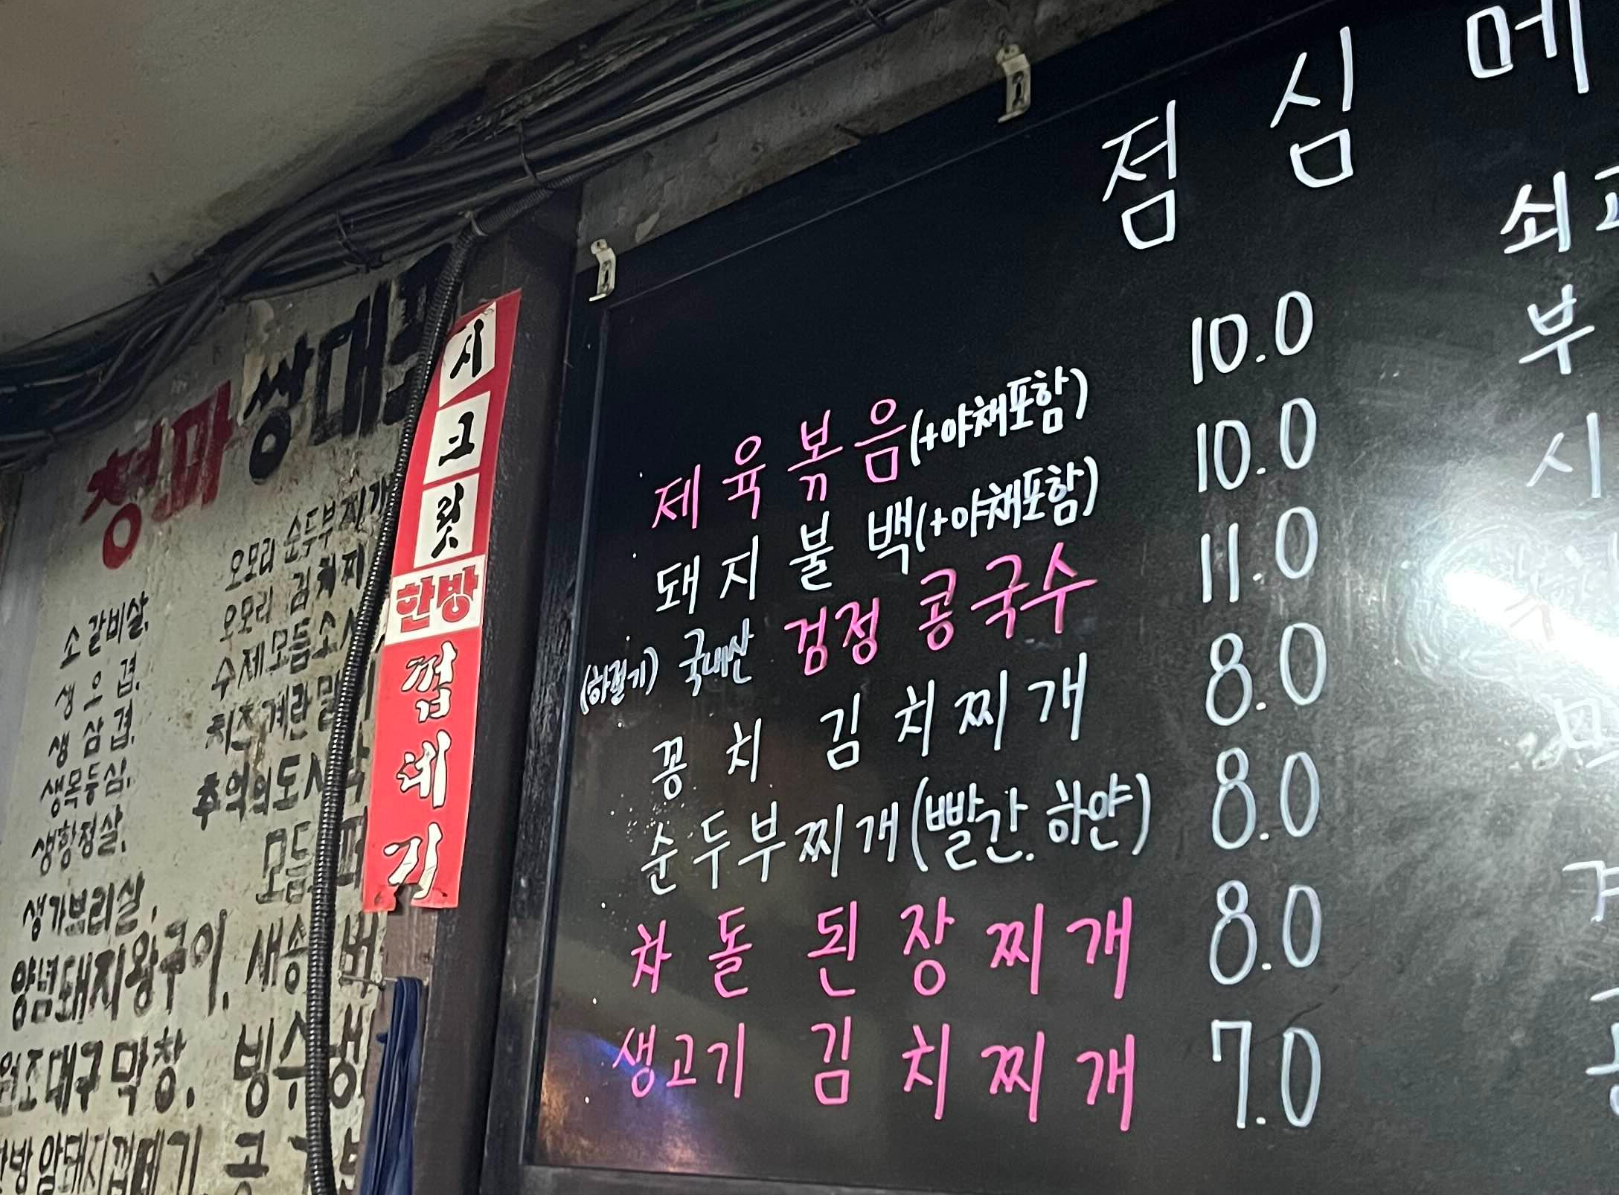 청마쌍대포
소갈비살,
생오겹,
생삼겹,
생목등심,
생항정살,
생가브리살,
양념돼지왕구이, 새송 버
원조대구막창,
암돼지껍데기,
오모리 순두부찌개
오모리 김치찌
수제모듬소시
치즈계란말이
추억의도시락
모듬
시크릿
한방
껍데기
점심 메
제육볶음(+야채포함) 10.0
돼지불백(+야채포함) 10.0
(하절기) 국내산 검정콩국수 11.0
꽁치 김치찌개 8.0
순두부찌개(빨간.하얀) 8.0
차돌 된장찌개 8.0
생고기 김치찌개 7.0
쇠고
부
시